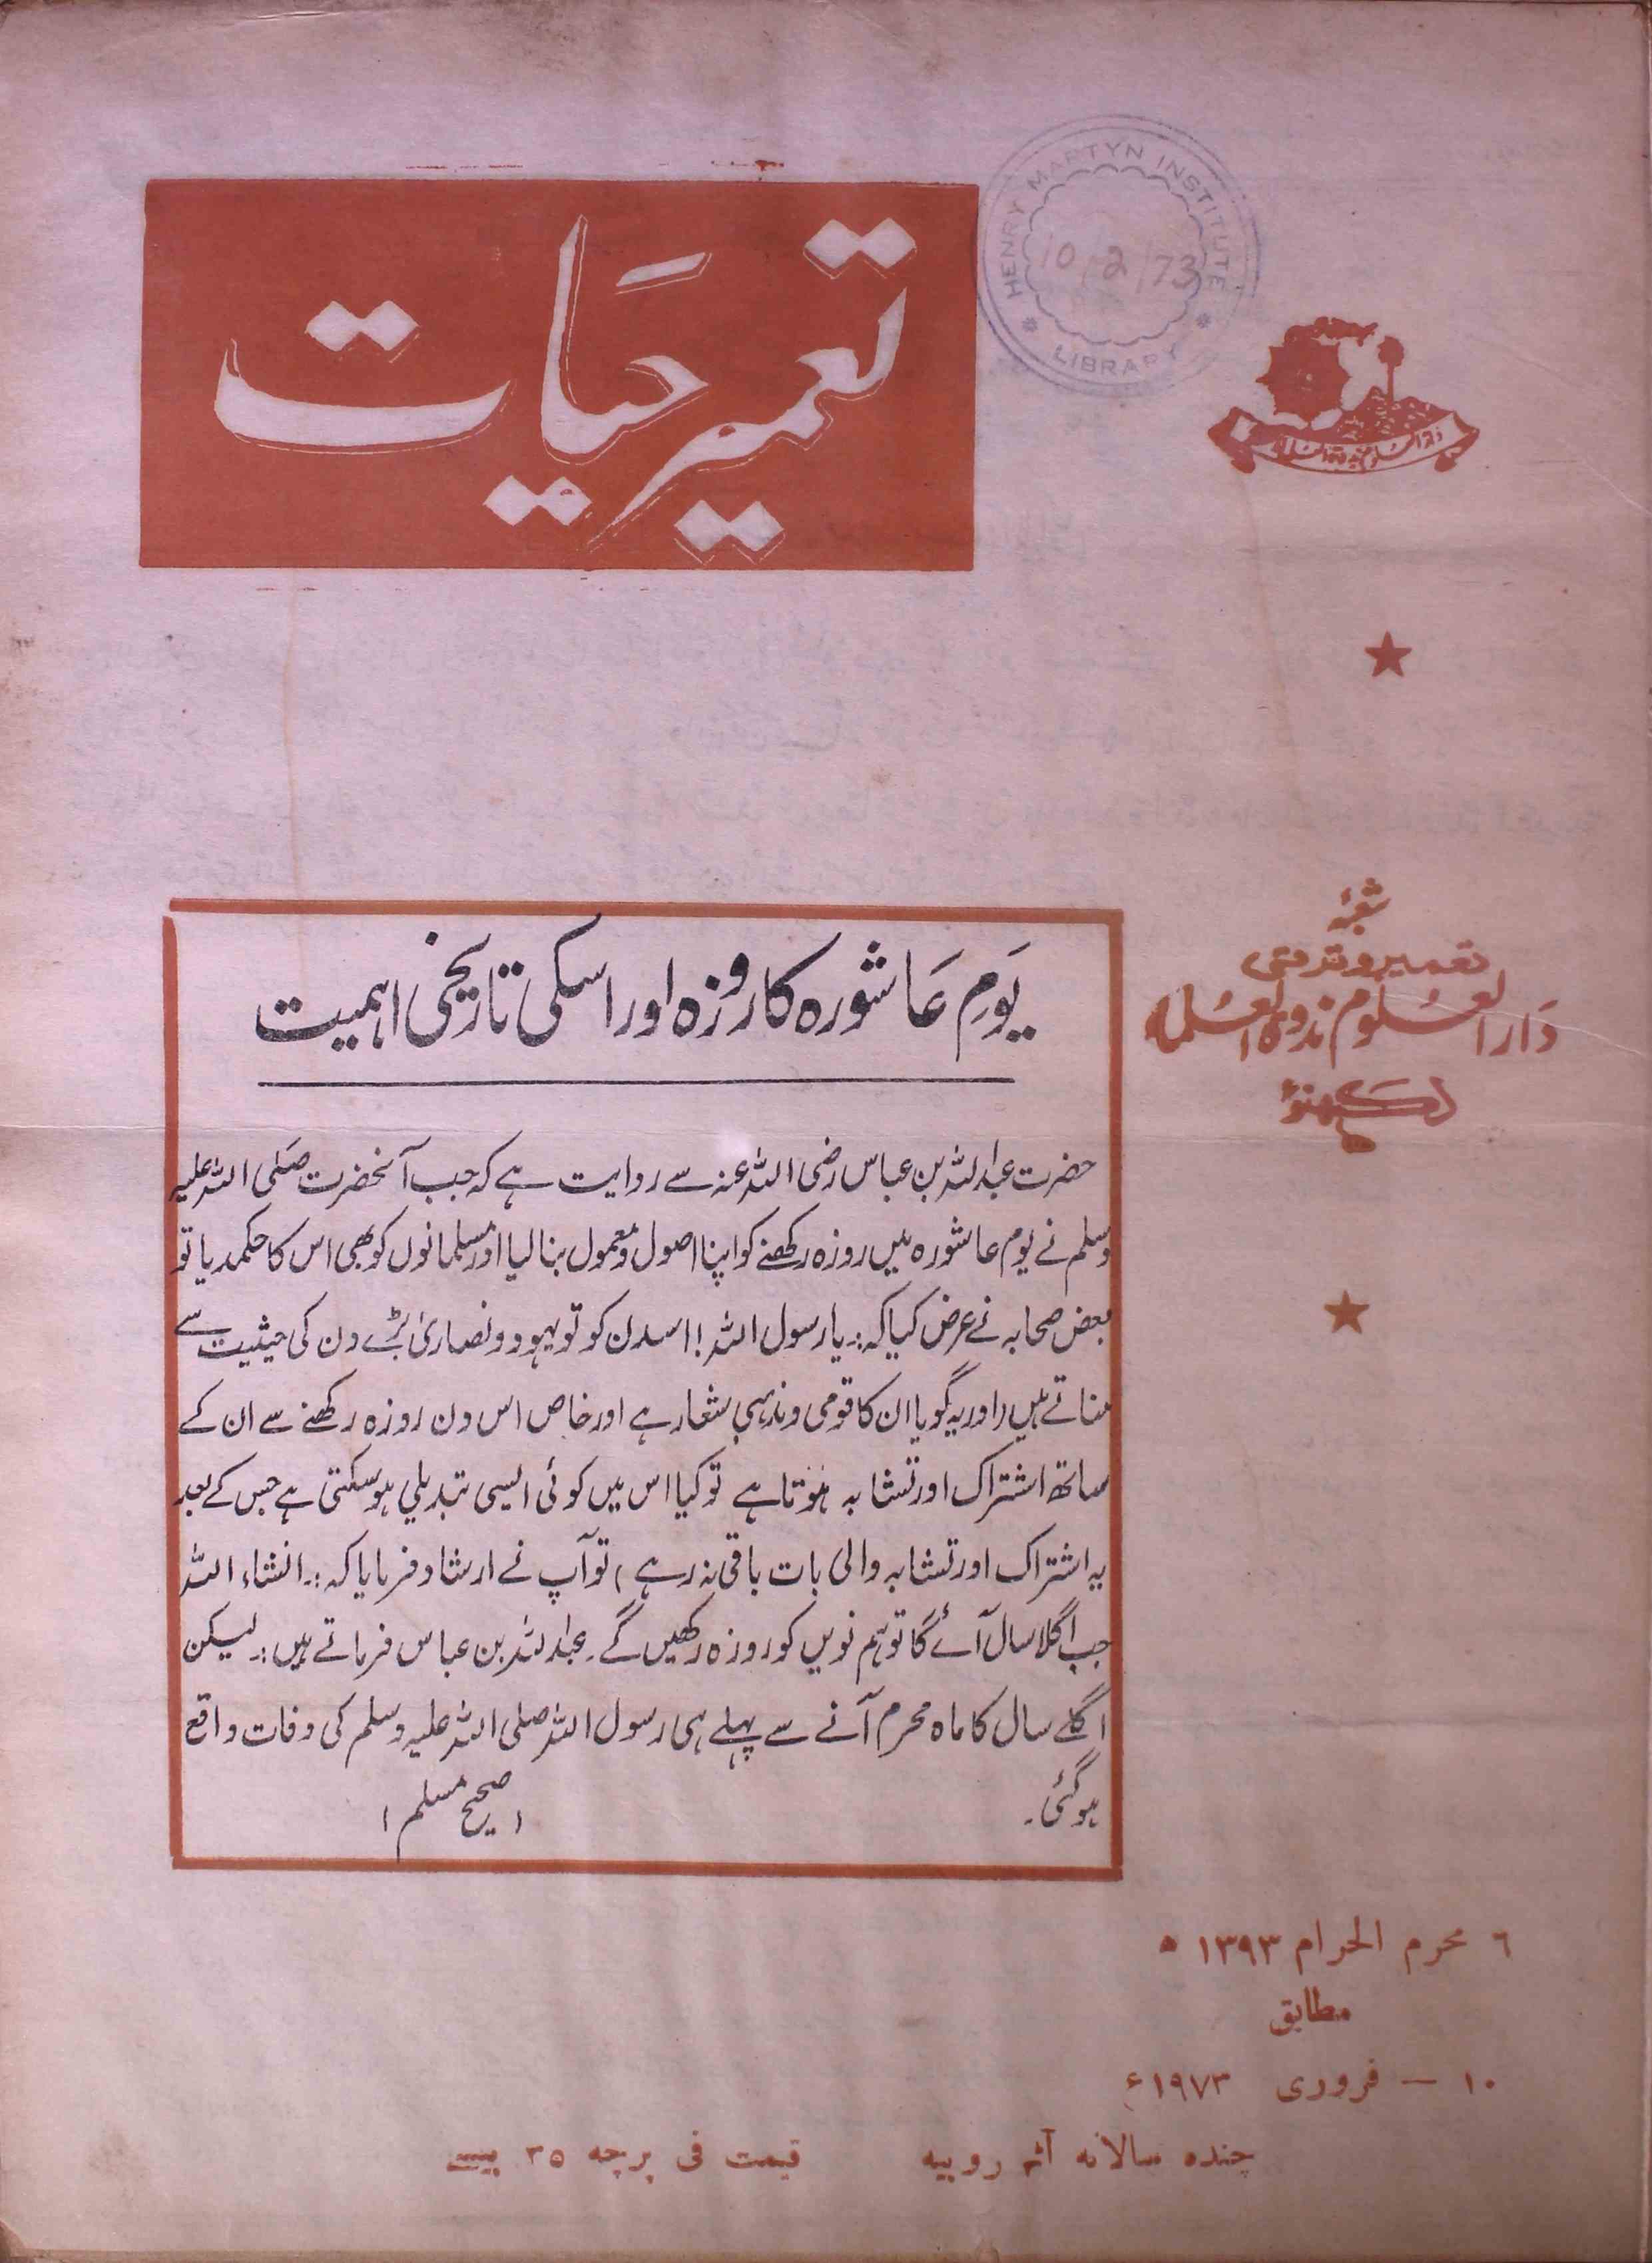 تعمیر حیات
HENRY MARTYN INSTITUTE
10/2/73
LIBRARY
شعبۂ
تعمیر و ترقی
دار العلوم ندوۃ العلماء
لکھنؤ
یَومِ عَاشورہ کا روزہ اور اسکی تاریخی اہمیت
حضرت عبداللہ بن عباس رضی اللہ عنہ سے روایت ہے کہ جب آنحضرت صَلی اللہ علیہ
وسلم نے یوم عاشورہ میں روزہ رکھنے کو اپنا اصول و معمول بنا لیا اور مسلمانوں کو بھی اس کا حکم دیا تو
بعض صحابہ نے عرض کیا کہ :۔ یا رسول اللہ ! اسدن کو تو یہود و نصاریٰ بڑے دن کی حیثیت سے
مناتے ہیں (اور یہ گویا ان کا قومی و مذہبی شعار ہے اور خاص اس دن روزہ رکھنے سے ان کے
ساتھ اشتراک اور تشابہ ہوتا ہے تو کیا اس میں کوئی ایسی تبدیلی ہو سکتی ہے جس کے بعد
یہ اشتراک اور تشابہ والی بات باقی نہ رہے ) تو آپ نے ارشاد فرمایا کہ :۔ انشاء اللہ
جب اگلا سال آئے گا تو ہم نویں کو روزہ رکھیں گے ۔ عبداللہ بن عباس فرماتے ہیں :۔ لیکن
اگلے سال کا ماہ محرم آنے سے پہلے ہی رسول اللہ صلی اللہ علیہ وسلم کی وفات واقع
ہو گئی ۔ ( صحیح مسلم )
٦ محرم الحرام ١٣٩٣ ھ
مطابق
١٠ — فروری ١٩٧٣ء
چندہ سالانہ آٹھ روپیہ قیمت فی پرچہ ٣٥ پیسے